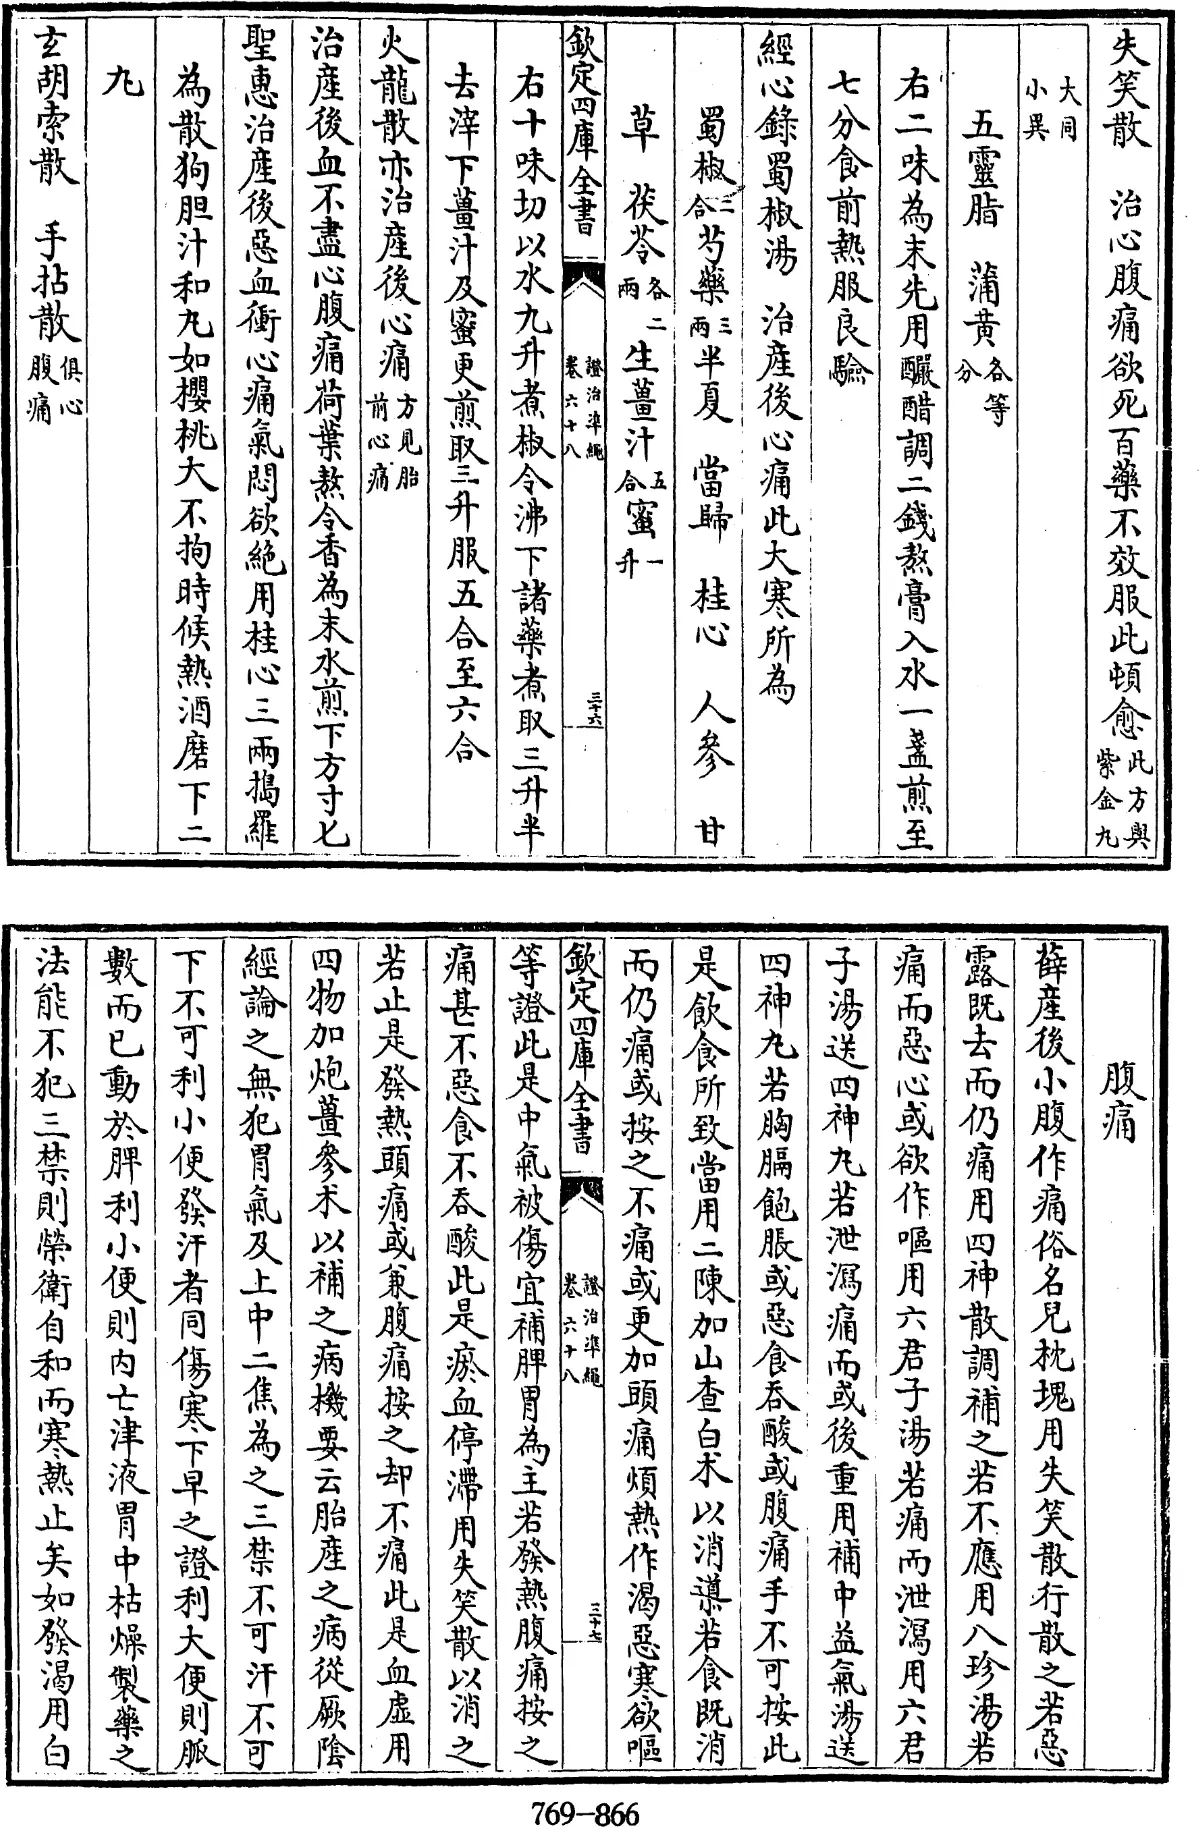 失笑散　治心腹痛欲死百藥不效服此頓愈此方與紫金丸
大同小異
五靈脂　蒲黄各等分
右二味為末先用釅醋調二錢熬膏入水一盞煎至
七分食前熱服良驗
經心錄蜀椒湯　治産後心痛此大寒所為
蜀椒二合芍藥三兩半夏　當歸　桂心　人參　甘
草　茯苓各二兩　生薑汁五合蜜一升
欽定四庫全書　證治準繩卷六十八　三十六
右十味切以水九升煮椒令沸下諸藥煮取三升半
去滓下薑汁及蜜更煎取三升服五合至六合
火龍散亦治産後心痛方見胎前心痛
治産後血不盡心腹痛荷葉熬令香為末水煎下方寸匕
聖惠治産後惡血衝心痛氣悶欲絶用桂心三兩搗羅
為散狗胆汁和丸如櫻桃大不拘時候熱酒磨下二
丸
玄胡索散　手拈散俱心腹痛
腹痛
薛産後小腹作痛俗名兒枕塊用失笑散行散之若惡
露既去而仍痛用四神散調補之若不應用八珍湯若
痛而惡心或欲作嘔用六君子湯若痛而泄瀉用六君
子湯送四神丸若泄瀉痛而或後重用補中益氣湯送
四神丸若胸膈飽脹或惡食吞酸或腹痛手不可按此
是飲食所致當用二陳加山查白朮以消導若食既消
而仍痛或按之不痛或更加頭痛煩熱作渴惡寒欲嘔
欽定四庫全書　證治準繩卷六十八　三十七
等證此是中氣被傷宜補脾胃為主若發熱腹痛按之
痛甚不惡食不吞酸此是瘀血停滯用失笑散以消之
若止是發熱頭痛或兼腹痛按之却不痛此是血虛用
四物加炮薑參朮以補之病機要云胎産之病從厥陰
經論之無犯胃氣及上中二焦為之三禁不可汗不可
下不可利小便發汗者同傷寒下早之證利大便則脈
數而已動於脾利小便則内亡津液胃中枯燥製藥之
法能不犯三禁則榮衛自和而寒熱止矣如發渴用白
769-866